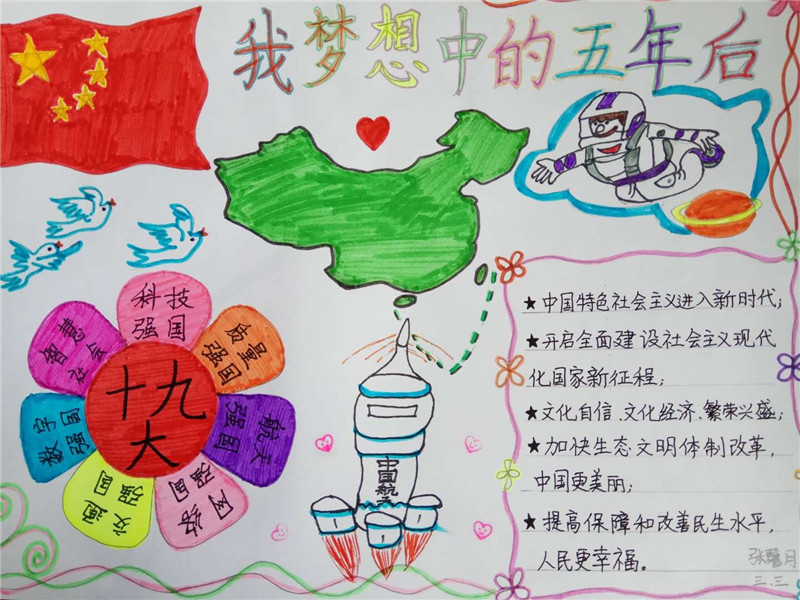 我梦想中的五年后
科技
强国
质量
强国
航天
强国
网络
强国
交通
强国
数字
强国
智慧
社会
十九
大
中国航天
★中国特色社会主义进入新时代;
★开启全面建设社会主义现代
化国家新征程;
★文化自信、文化经济、繁荣兴盛;
★加快生态文明体制改革,
中国更美丽;
★提高保障和改善民生水平,
人民更幸福。
三.三